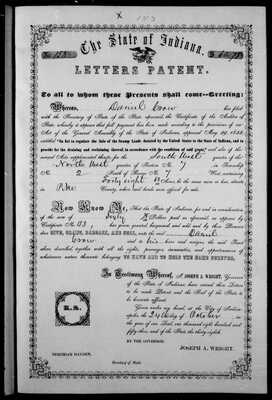 The State of Indiana.
LETTERS PATENT.
To all to whom these Presents shall come—Greeting:
Whereas, Daniel Crow has filed
with the Secretary of State of the State aforesaid, the Certificate of the Auditor of
State, whereby it appears that full payment has been made according to the provisions of "An
Act of the General Assembly of the State of Indiana, approved May 29, 1852,
entitled "An Act to regulate the Sale of the Swamp Lands donated by the United States to the State of Indiana, and to
provide for the draining and reclaiming thereof, in accordance with the condition of said grant," and also of the
several Acts supplemental thereto, for the South West quarter of the
North West quarter of Section No. 7 in Township
No. 2 South of Range No. 7 West containing
Forty eight Acres, be the same more or less, situate
in Pike County, when such lands were offered for sale.
Now Know Ye, That the State of Indiana, for and in consideration
of the sum of Sixty Dollars paid as aforesaid, as appears by
Certificate No. has given, granted, bargained and sold, and by these Presents
does GIVE, GRANT, BARGAIN, AND SELL, unto the said Daniel
Crow and to his heirs and assigns the said Tract
above described, together with all the rights, privileges, immunities, and appurtenances of
whatsoever nature thereunto belonging TO HAVE AND TO HOLD THE SAME FOREVER.
In Testimony Whereof, I, JOSEPH A. WRIGHT, Governor
of the State of Indiana, have caused these Letters
to be made Patent, and the Seal of the State to
be hereunto affixed.
Given under my hand, at the City of Indianapolis,
the 24th day of October in
the year of our Lord, one thousand eight hundred and
fifty-three, and of the State the thirty-eighth.
JOSEPH A. WRIGHT.
NEHEMIAH HAYDEN,
Secretary of State.